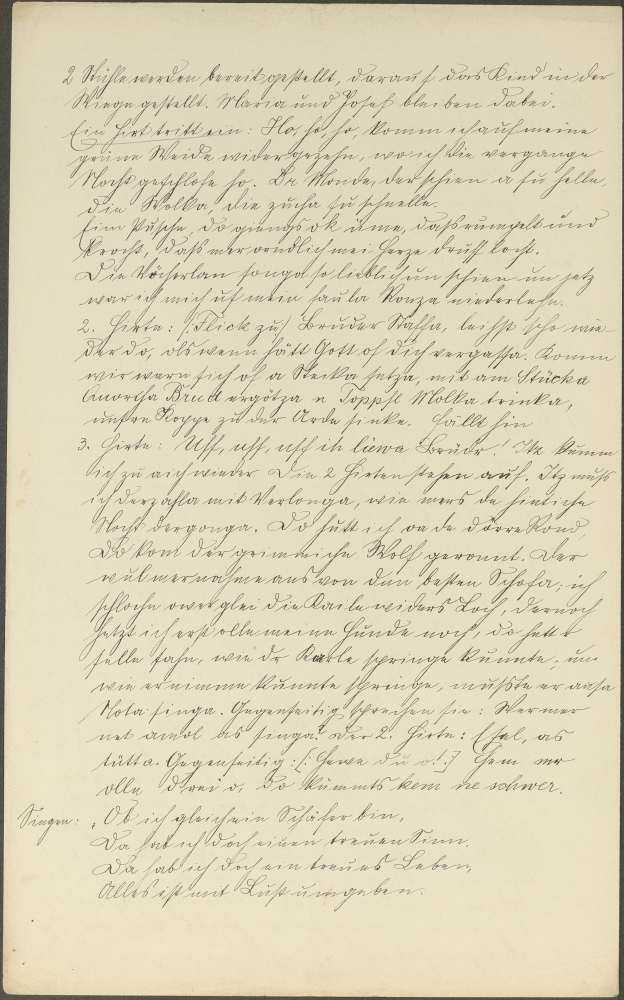 2 Stühle werden bereit gestellt, darauf das Kind in der
Wiege gestellt. Maria und Josef bleiben dabei.
Ein Hirt tritt ein: Ho, ho, ho, komm ich auf meine
grüne Weide wider gezehn, wo ich die vergange
Nacht geschlofe ho. Dr Monde, der schien a su helle,
die Wolka, die zucha su schnelle.
Eim Pusche, do giengs ok üme, doss rumpelt und
krocht, dass mer orndlich mei Herze druff kocht.
Die Vöcherlan songa so lieblich un schien un jetz
war ich mich uf mein faula Ronza niederlehn.
2. Hirte: (Flick zu) Bruder Staffa, leihst scho wie-
der do, als wenn hätt Gott of dich vergassa. Komm
wir warn sich of a Stecka setza, mit am Stücka
Brud ergötza a Toppsl Molka trinka,
unsre Koppe zu der Arde sinke. Fällt hin
3. Hirte: Uff, uff, uff ihr liewa Brüdr! Itz kumm
ich zu aich wieder. Die 2 Hirten stehen auf. Itz muss
ich derzahla mit Verlonga, wie mers de hintiche
Nocht dergonga. Do hutt ich on de dörre Rond,
Do kom der grimmiche Wolf geronnt. Der
wul mer nahme ans von dan besten Schofa; ich
schloche ower glei die Kaile widers Loch, dernoch
hetzt ich erst olle meine Hunde noch, do hett r
selle sahn, wie dr Karle springe kunnte, un
wie er nimme kunnte springe, musste er aasa
Nota singa. Gegenseitig sprechen sie: Wer mer
net amol as singa? Der 2. Hirte: Esel, as
tutt a. Gegenseitig: [: Hewe du o! :] Hem mr
olle drei o, do kummts kem ne schwer.
Singen: „Ob ich gleich ein Schäfer bin,
Da hab ich doch einen treuen Sinn.
Da hab ich doch ein treues Leben,
Alles ist mit Lust umgeben.